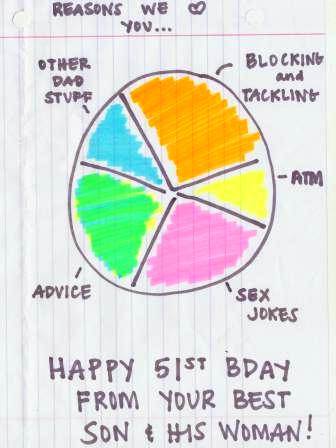 REASONS WE ♡
YOU...
OTHER
DAD
STUFF
BLOCKING
and
TACKLING
ATM
ADVICE
SEX
JOKES
HAPPY 51ST BDAY
FROM YOUR BEST
SON & HIS WOMAN!